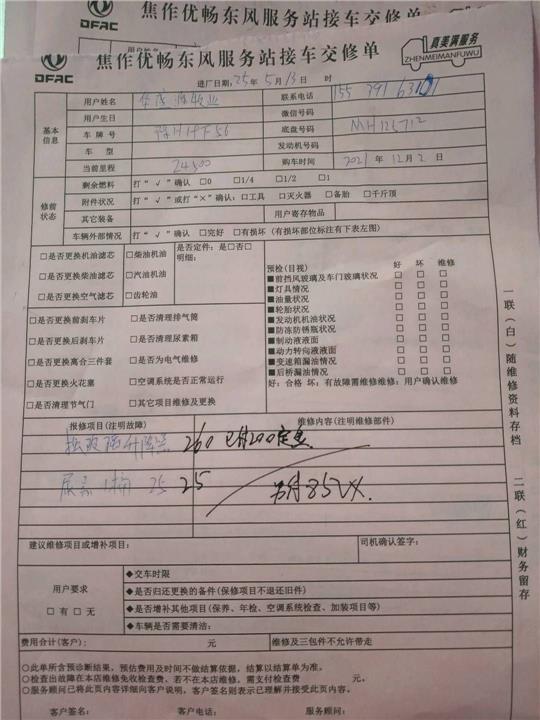 焦作优畅东风服务站接车交修单
DFAC
焦作优畅东风服务站接车交修单
DFAC
真美满服务
ZHENMEIMANFUWU
进厂日期: 25 年 5 月 13 日 时
基本信息
用户姓名 联系电话
用户生日 微信号码
车牌号 底盘号码 MH125712
车型 发动机号码
当前里程 24500 购车时间 2021 年 12 月 2 日
修前状态
剩余燃料 打“√”确认 □0 □1/4 □1/2 □1
附件状况 打“√”或打“×”确认:□工具 □灭火器 □备胎 □千斤顶
其它装备 用户寄存物品
车辆外部情况 打“√”确认 □完好 □有损坏(有损坏部位标注有下表左图)
□是否更换机油滤芯 □柴油机油 是否定件:是□否□
明细:
□是否更换柴油滤芯 □汽油机油
□是否更换空气滤芯 □齿轮油
□是否更换前刹车片 □是否清理排气筒
□是否更换后刹车片 □是否清理尿素箱
□是否更换离合三件套 □是否为电气维修
□是否更换火花塞 □空调系统是否正常运行
□是否清理节气门 □其它项目维修及更换
预检(目视) 好 坏 维修
■前挡风玻璃及车门玻璃状况 □ □ □
■灯具情况 □ □ □
■油量状况 □ □ □
■轮胎状况 □ □ □
■发动机机油状况 □ □ □
■防冻防锈瓶状况 □ □ □
■制动液液面 □ □ □
■动力转向液液面 □ □ □
■变速箱漏油情况 □ □ □
■后桥漏油情况 □ □ □
好:合格 坏:有故障需维修维修:用户确认维修
报修项目(注明故障) 维修内容(注明维修部件)
260 已付200定金
尿素1桶 25 25
建议维修项目或增补项目: 司机确认签字:
用户要求
□有 □无
◆交车时限
◆是否归还更换的备件(保修项目不退还旧件)
◆是否增补其他项目(保养、年检、空调系统检查、加装项目等)
◆车辆是否需要清洁:
费用合计(客户): 元 维修及三包件不允许带走
○此单所含预诊断结果,预估费用及时间不做结算依据,结算以结算单为准。
○检查出故障在本店维修免收检查费,若不在本店维修,需支付检查费 元。
○服务顾问已将此页内容详细向客户说明,客户签名则表示已理解并接受此页内容。
客户签名: 客户电话: 服务顾问:
一联(白)随维修资料存档
二联(红)财务留存